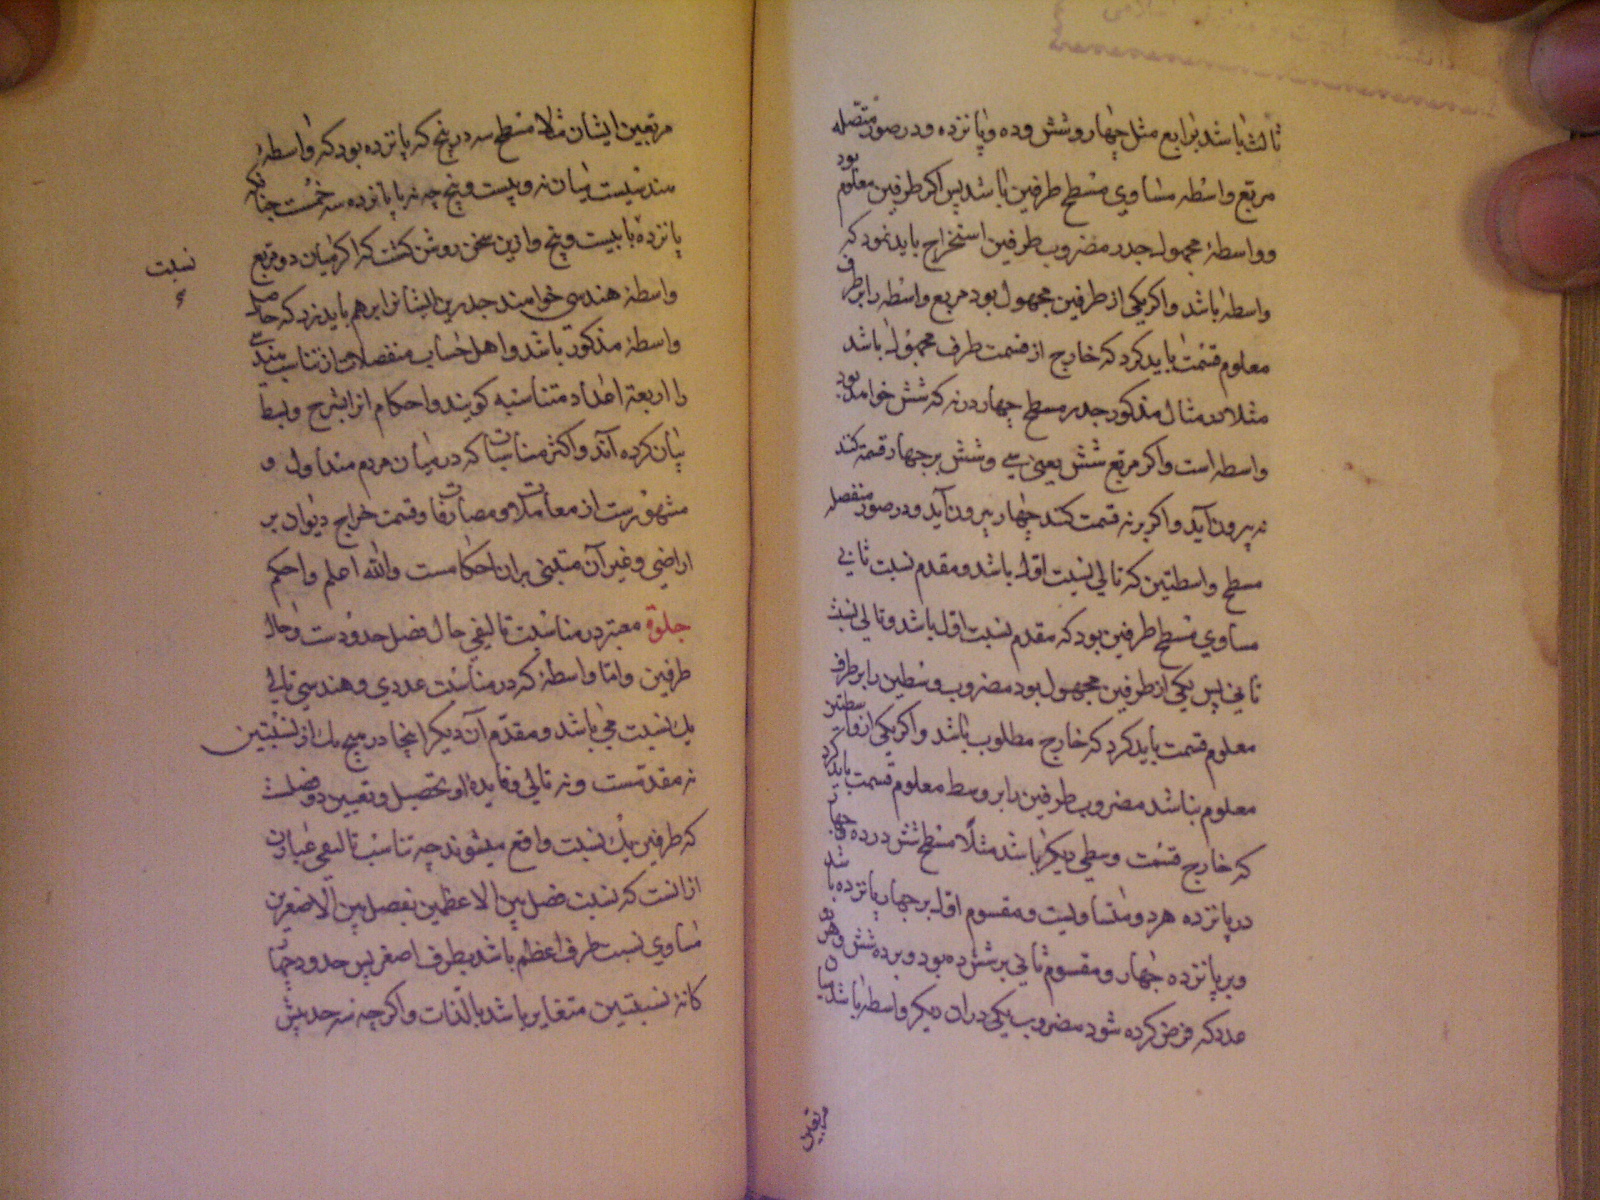 ثالث باشد برابع مثل چهار و شش و ده و پانزده و در صور متصله
مربع واسطه مساوي مسطح طرفین باشد پس اکر طرفین معلوم بود
و واسطهٔ مجهول جدر مضروب طرفین استخراج باید نمود که
واسطه باشد و اکر یکی از طرفین مجهول بود مربع واسطه را بر طرف
معلوم قسمت باید کرد که خارج از قسمت طرف مجهول باشد
مثلا در مثال مذکور جدر مسطح چهار در نه که شش خواهد بود
واسطه است و اکر مربع شش یعنی سی و شش بر چهار قسمة کند
نه بیرون آید و اکر بر نه قسمت کند چهار بیرون آید و در صور منفصله
مسطح واسطتین که تالي نسبت اول باشد و مقدم نسبت ثاني
مساوي مسطح طرفین بود که مقدم نسبت اول باشد و تالي نسبت
ثاني پس یکی از طرفین مجهول بود مضروب وسطین را بر طرف
معلوم قسمت باید کرد که خارج مطلوب باشد و اکر یکی از واسطتین
معلوم نباشد مضروب طرفین را بر وسط معلوم قسمت باید کرد
که خارج قسمت وسطی دیکر باشد مثلًا مسطح شش در ده و چهار
در پانزده هر دو متساویست و مقسوم اول بر چهار پانزده باشد
و بر پانزده چهار و مقسوم ثاني بر شش ده بود و بر ده شش و هر دو
عدد که فرض کرده شود مضروب یکی در ان دیکر واسطه باشد میان
مربعین
مربعین ایشان مثلا مسطح سه در پنج که پانزده بود که واسطهٔ
هندسیست میان نه و بیست و پنج چه نه با پانزده سه خمست چنانکه
پانزده با بیست و پنج و ازین سخن روشن کشت که اکر میان دو مربع
نسبت
واسطهٔ هندسی خواهند جدرین ایشانرا بر هم باید زد که حاصل
واسطهٔ مذکور باشد و اهل حساب منفصلات از تناسب هندسی
را اربعهٔ اعداد متناسبه کویند و احکام انرا بشرح و بسط
بیان کرده آند و اکثر مناسبات که در میان مردم متداول و
مشهورست از معاملات و مصارفات و قسمت خراج دیوان بر
اراضي و غیر آن مبتنی بر ان احکامست والله اعلم و احکم
جلوة معتبر در مناسبت تالیفي حال فضل حدودست و حال
طرفین و امّا واسطهٔ که در مناسبت عددي و هندسي تالي
یک نسبت مي باشد و مقدّم آن دیکر اینجا در هیچ یک از نسبتین
نه مقدمست و نه تالي و فایدهٔ او تحصیل و تعیین دو فضلست
که طرفین یک نسبت واقع میشوند چه تناسب تالیفي عبارت
ازانست که نسبت فضل بین الاعظمین بفصل بین الاصغرین
مساوي نسبت طرف اعظم باشد بطرف اصغر پس حدود چهار
کانهٔ نسبتین متغایر باشد بالذات و اکرچه سه حد بیش